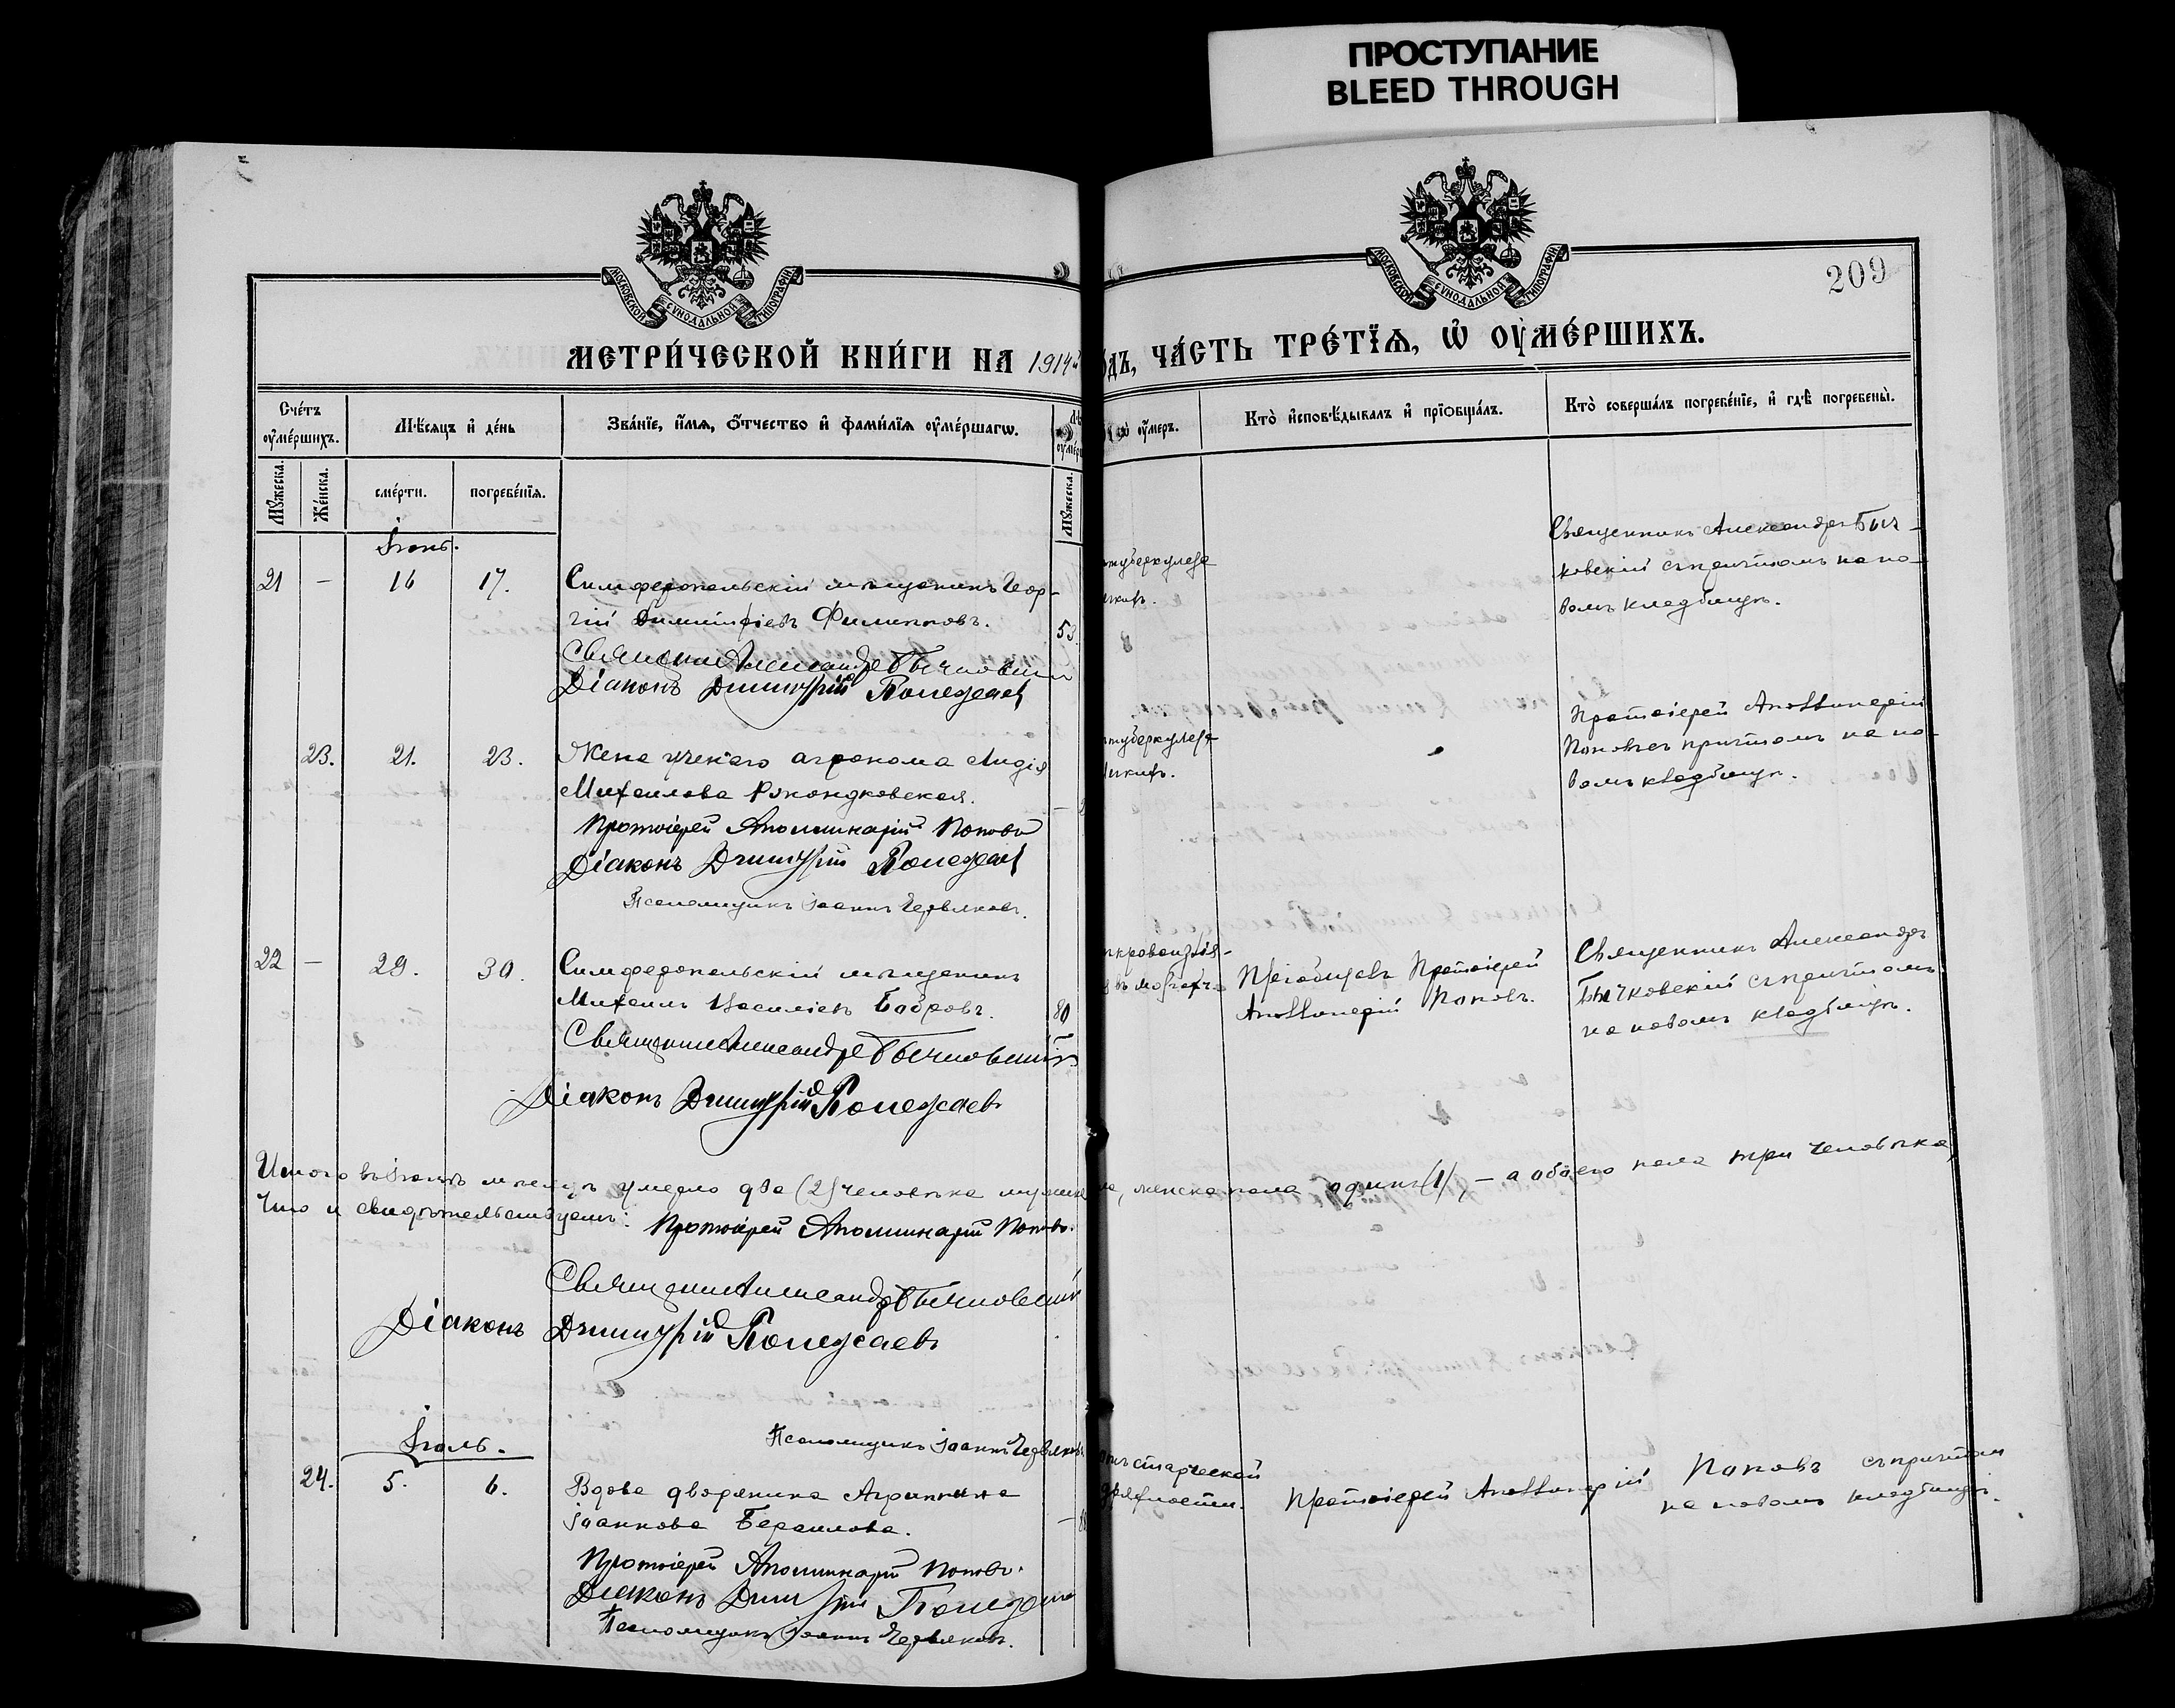 ПРОСТУПАНИЕ
BLEED THROUGH
МОСКОВСКОЙ СѴНОДАЛЬНОЙ ТИПОГРАФІИ
МОСКОВСКОЙ СѴНОДАЛЬНОЙ ТИПОГРАФІИ
209
МЕТРИ́ЧЕСКОЙ КНИ́ГИ НА 1914й
ОДЪ, ЧА́СТЬ ТРЕ́ТЇѦ, Ѡ҆ ОУ҆МЕ́РШИХЪ.
Сче́тъ оу҆ме́ршихъ.
Мѣ́сяцъ и҆ де́нь
Зва́нїе, и҆́мѧ, ѻ҆́тчество и҆ фами́лїѧ оу҆ме́ршагѡ.
оу҆́меръ.
Кто̀ и҆сповѣ́дывалъ и҆ прїѡбща́лъ.
Кто̀ соверша́лъ погребе́нїе, и҆ гдѣ̀ погребены̀.
Мꙋ́жеска.
Же́нска.
сме́рти.
погребе́нїѧ.
Мꙋ́жеска.
Іюнь.
21 — 16 17. Симферопольскій мѣщанинъ Геор-
гій Димитріевъ Филипповъ. 53
Священникъ Александръ Бычковскій
Діаконъ Димитрій Полежаевъ
туберкулеза
легкихъ.
Священникъ Александръ Быч-
ковскій съ причтомъ на но-
вомъ кладбищѣ.
23. 21. 23. Жена ученаго агронома Лидія
Михаилова —
Протоіерей Аполлинарій Поповъ
Діаконъ Димитрій Полежаевъ
Псаломщикъ Іоаннъ Червяковъ.
туберкулеза
легкихъ.
Протоіерей Аполлинарій
Поповъ съ причтомъ на но-
вомъ кладбищѣ.
22 — 29. 30. Симферопольскій мѣщанинъ
Михаилъ Василіевъ Бобровъ. 80
Священникъ Александръ Бычковскій
Діаконъ Димитрій Полежаевъ
кровоизлія-
въ мозгъ
Пріобщалъ Протоіерей
Аполлинарій Поповъ.
Священникъ Александръ
Бычковскій съ причтомъ
на новомъ кладбищѣ.
Итого въ Іюнѣ мѣсяцѣ умерло два (2) человѣка мужска
ла, женска пола одинъ (1), — а обоего пола три человѣка,
Что и свидѣтельствуемъ: Протоіерей Аполлинарій Поповъ.
Священникъ Александръ Бычковскій
Діаконъ Димитрій Полежаевъ
Псаломщикъ Іоаннъ Червяковъ
Іюль.
24. 5. 6. Вдова дворянина Агриппина
Іоаннова —
Протоіерей Аполлинарій Поповъ.
Діаконъ Димитрій Полежаевъ
Псаломщикъ Іоаннъ Червяковъ.
старческой
дряхлости.
Протоіерей Аполлинарій Поповъ съ причтом
на новомъ кладбищѣ.